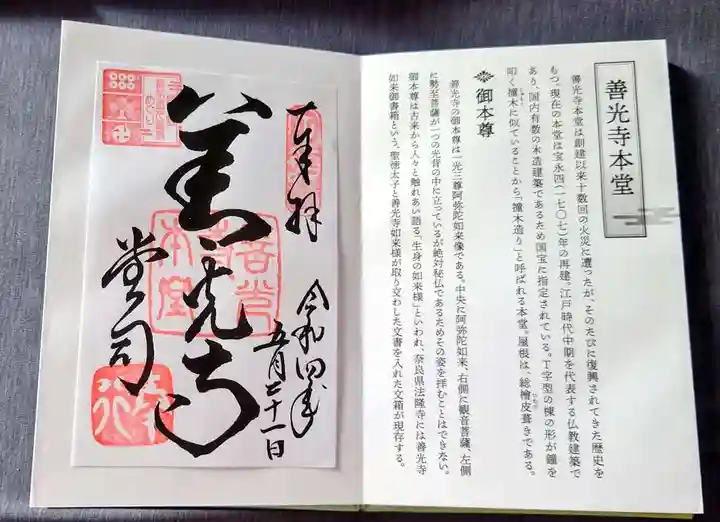 善光寺本堂
善光寺本堂は創建以来十数回の火災に遭ったが、そのたびに復興されてきた歴史を
もつ。現在の本堂は宝永四(一七〇七)年の再建。江戸時代中期を代表する仏教建築で
あり、国内有数の木造建築であるため国宝に指定されている。T字型の棟の形が鐘を
叩く撞木に似ていることから「撞木造り」と呼ばれる本堂。屋根は、総檜皮葺きである。
御本尊
善光寺の御本尊は一光三尊阿弥陀如来像である。中央に阿弥陀如来、右側に観音菩薩、左側
に勢至菩薩が一つの光背の中に立っているが絶対秘仏であるためその姿を拝むことはできない。
御本尊は古来から人々と触れあい語る「生身の如来様」といわれ、奈良県法隆寺には善光寺
如来御書箱という、聖徳太子と善光寺如来様が取り交わした文書を入れた文箱が現存する。
奉拝
令和四年
五月二十一日
善光寺
堂司